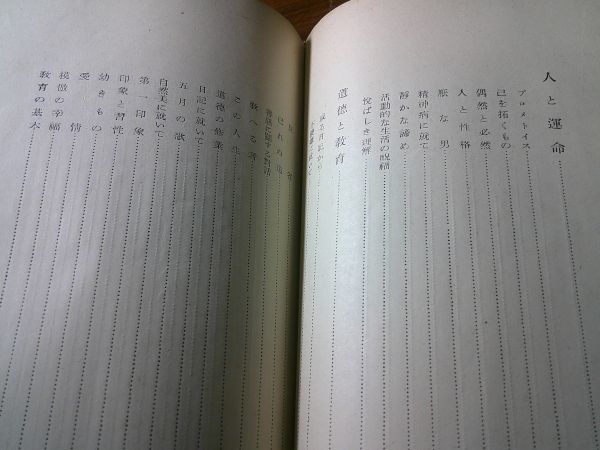 人と運命
プロメトイス
己を拓くもの
偶然と必然
人と性格
厭な男
精神病に就て
静かな諦め
活動的な生活の祝福
悦ばしき理解
道徳と教育
或る日記から
己れの道
習慣に関する対話
教へる者
この人生
道徳の修業
日記に就いて
五月の歌
自然美に就いて
第一印象
印象と習性
幼きもの
愛情
模倣の幸福
教育の基本